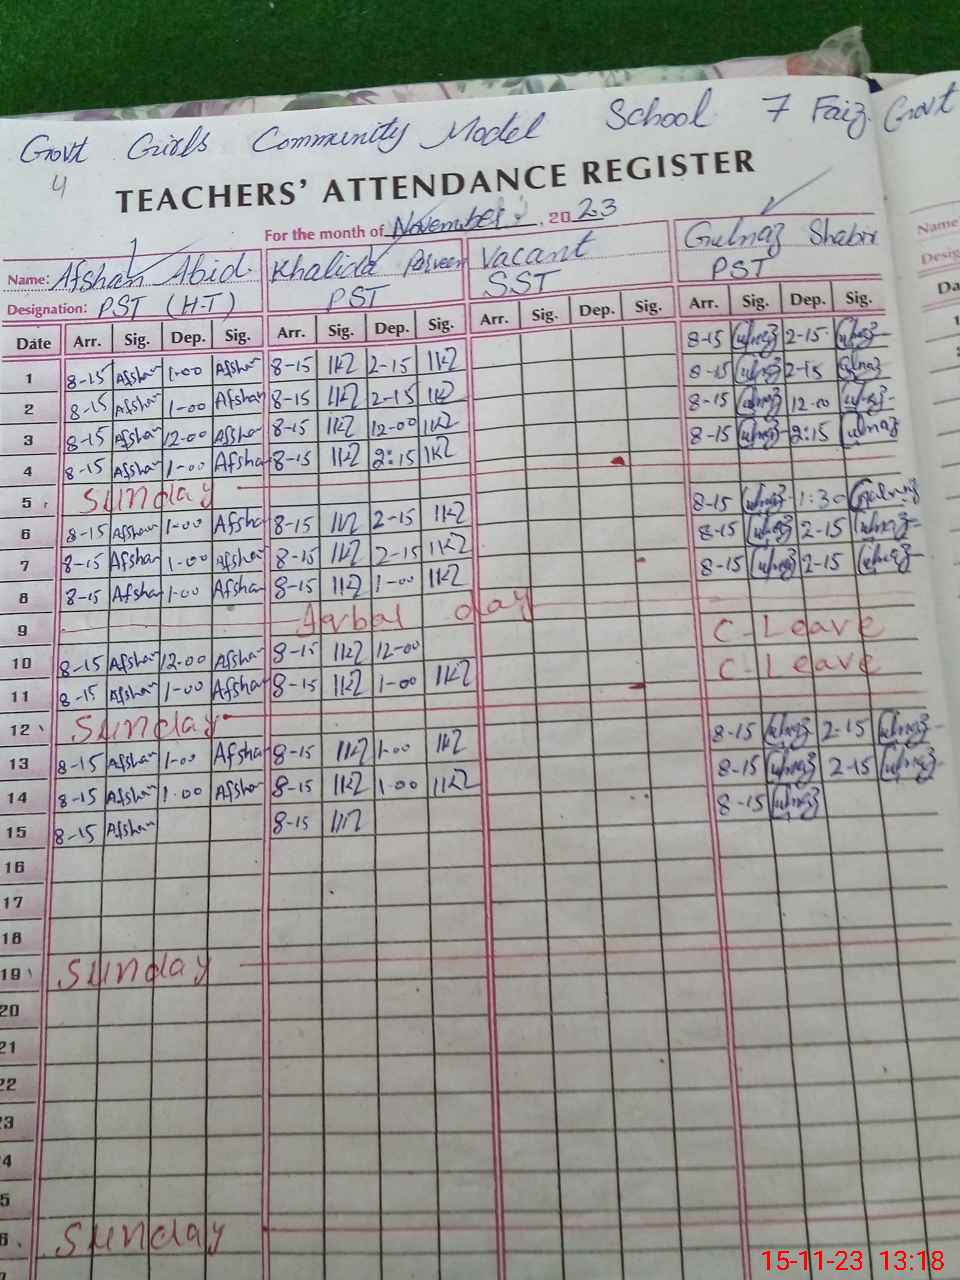 Govt Girls Community Model School 7 Faiz. Govt
4
TEACHERS' ATTENDANCE REGISTER
For the month of November. 2023
Name: Afshan Abid Khalida Parveen Vacant Gulnaz Shabir
Designation: PST (H.T) PST SST PST
Date Arr. Sig. Dep. Sig. Arr. Sig. Dep. Sig. Arr. Sig. Dep. Sig. Arr. Sig. Dep. Sig.
1 8-15 Afshan 1-00 Afshan 8-15 2-15 8-15 2-15
2 8-15 Afshan 1-00 Afshan 8-15 2-15 8-15 2-15
3 8-15 Afshan 12-00 Afshan 8-15 12-00 8-15 12-00
4 8-15 Afshan 1-00 Afshan 8-15 2:15 8-15 2:15
5 Sunday
6 8-15 Afshan 1-00 Afshan 8-15 2-15 8-15 1:30
7 8-15 Afshan 1-00 Afshan 8-15 2-15 8-15 2-15
8 8-15 Afshan 1-00 Afshan 8-15 1-00 8-15 2-15
9 day
10 8-15 Afshan 12-00 Afshan 8-15 12-00 C-Leave
11 8-15 Afshan 1-00 Afshan 8-15 1-00 C-Leave
12 Sunday
13 8-15 Afshan 1-00 Afshan 8-15 1-00 8-15 2-15
14 8-15 Afshan 1-00 Afshan 8-15 1-00 8-15 2-15
15 8-15 Afshan 8-15 8-15
16
17
18
19 Sunday
20
21
22
23
4
5
6 Sunday
Name:
15-11-23 13:18